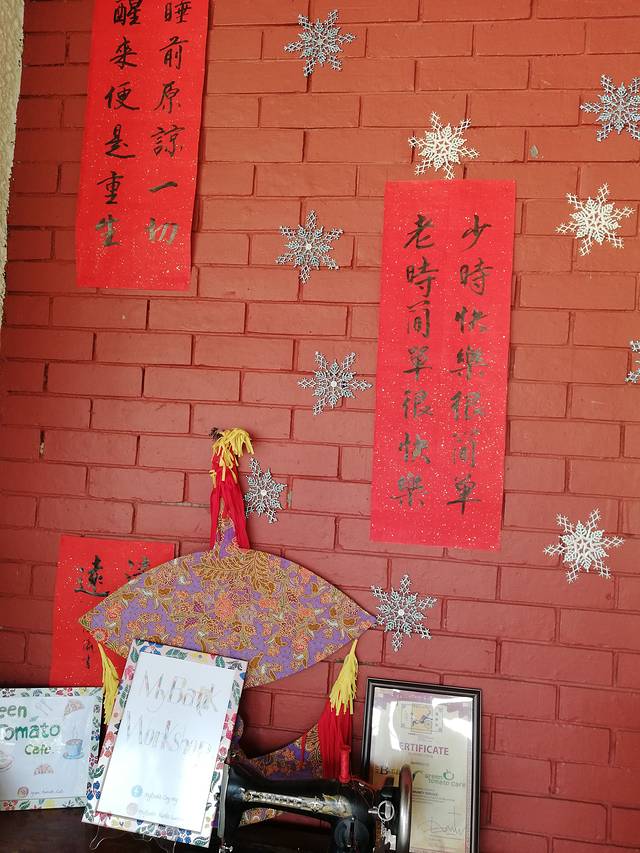 睡前原諒一切
醒來便是重生
少時快樂很簡單
老時簡單很快樂
遠
een
Tomato
Cafe
My Batik
Workshop
CERTIFICATE
green
tomato cafe